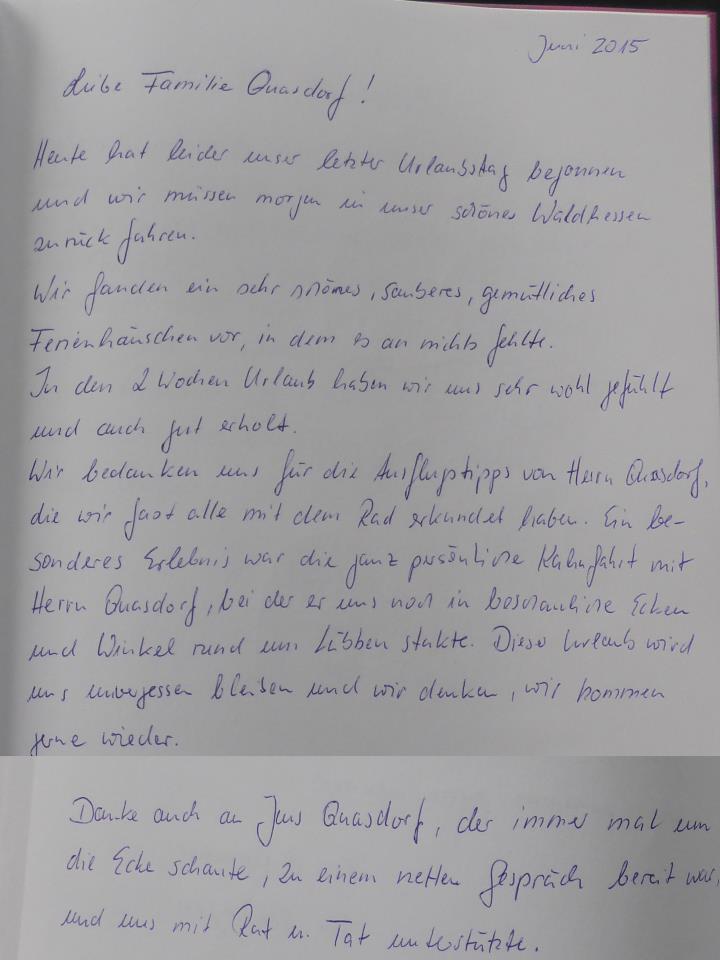 Juni 2015
Liebe Familie Quasdorf!
Heute hat leider unser letzter Urlaubstag begonnen
und wir müssen morgen in unser schönes Waldhessen
zurück fahren.
Wir fanden ein sehr schönes, sauberes, gemütliches
Ferienhäuschen vor, in dem es an nichts fehlte.
In den 2 Wochen Urlaub haben wir uns sehr wohl gefühlt
und auch gut erholt.
Wir bedanken uns für die Ausflugstipps von Herrn Quasdorf,
die wir fast alle mit dem Rad erkundet haben. Ein be-
sonderes Erlebnis war die ganz persönliche Kahnfahrt mit
Herrn Quasdorf, bei der er uns noch in beschauliche Ecken
und Winkel rund um Lübben stakte. Dieser Urlaub wird
uns unvergessen bleiben und wir denken, wir kommen
gerne wieder.
Danke auch an Jens Quasdorf, der immer mal um
die Ecke schaute, zu einem netten Gespräch bereit war,
und uns mit Rat u. Tat unterstützte.